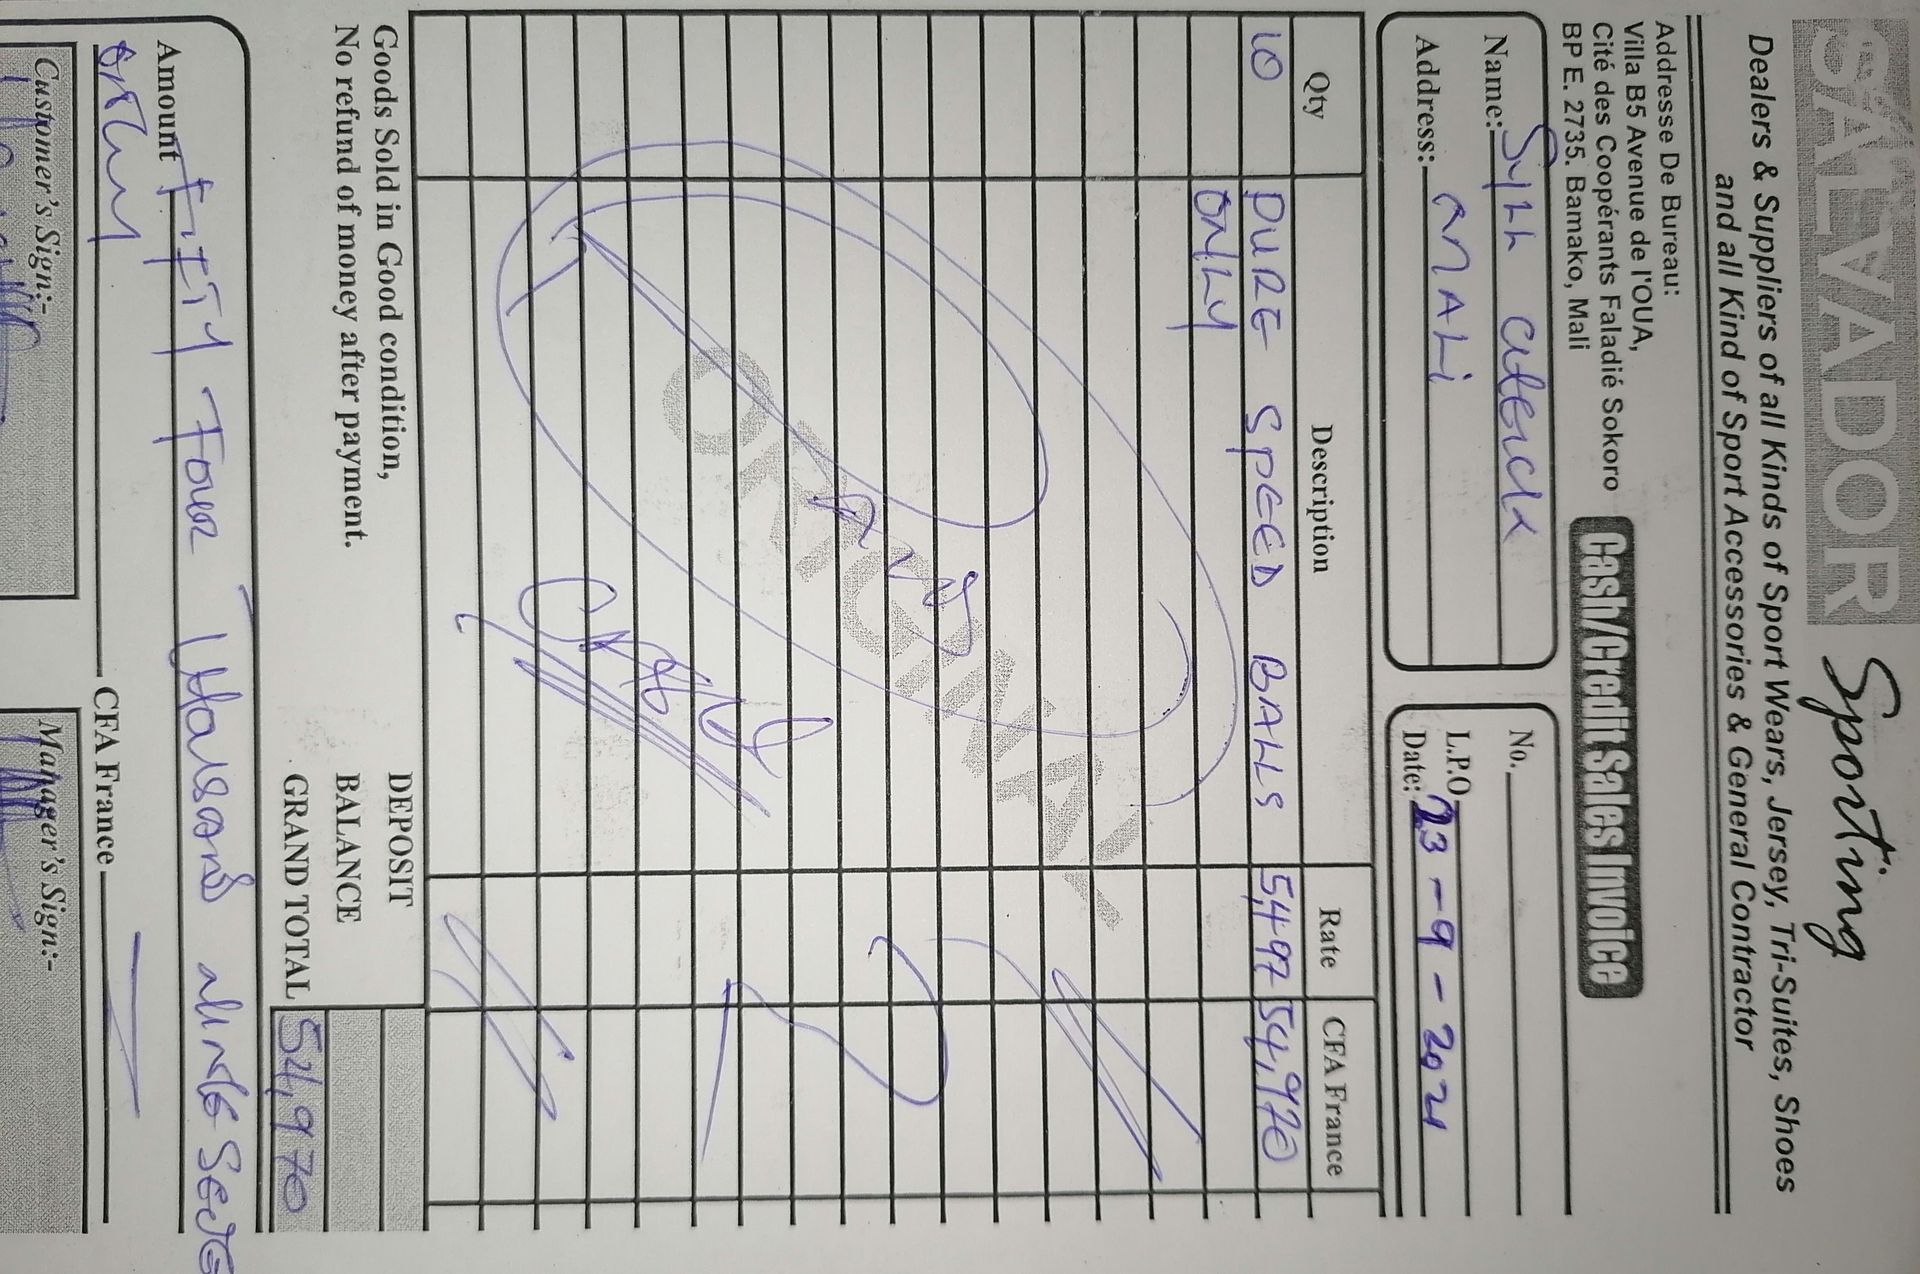 SALVADOR Sporting
Dealers & Suppliers of all Kinds of Sport Wears, Jersey, Tri-Suites, Shoes
and all Kind of Sport Accessories & General Contractor
Addresse De Bureau:
Villa B5 Avenue de l'OUA,
Cité des Coopérants Faladié Sokoro
BP E. 2735. Bamako, Mali
Cash/Credit Sales Invoice
Name:
Address: MALI
No.
L.P.O
Date: 23-9-2021
Qty Description Rate CFA France
10 PURE SPEED BALLS 5,497 54,970
ONLY
ORIGINAL
Goods Sold in Good condition,
No refund of money after payment.
DEPOSIT
BALANCE
GRAND TOTAL 54,970
Amount Fifty Four Thousand
only CFA France
Customer's Sign:-
Manager's Sign:-